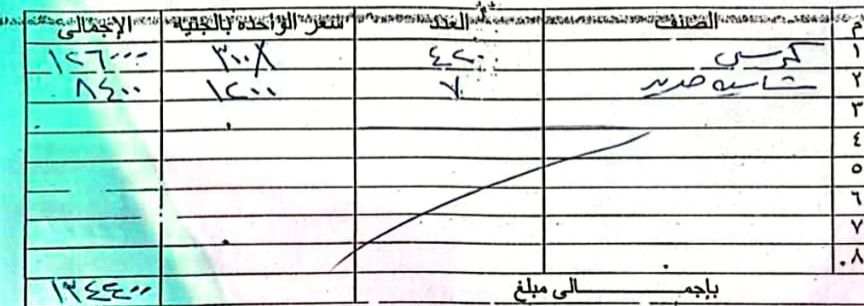 م الصنف العدد سعر الواحده بالجنية الإجمالى
١ كرسي ٤٢٠ ٣٠٠ ١٢٦٠٠٠
٢ شاسيه حديد ٧ ١٢٠٠ ٨٤٠٠
٣
٤
٥
٦
٧
٨.
بإجمـــالى مبلغ ١٣٤٤٠٠